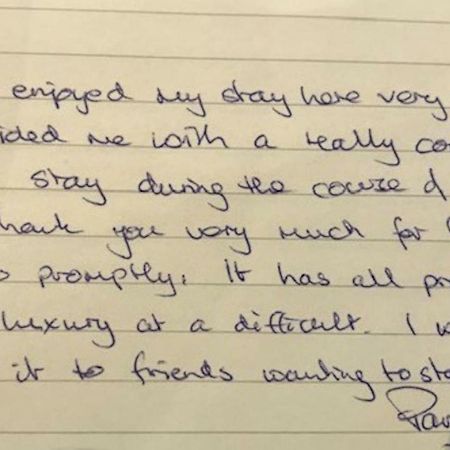 enjoyed my stay here very
ided me with a really co
stay during the course d
hank you very much for
o promptly. It has all pr
luxury at a difficult. I w
it to friends wanting to sta
Pau